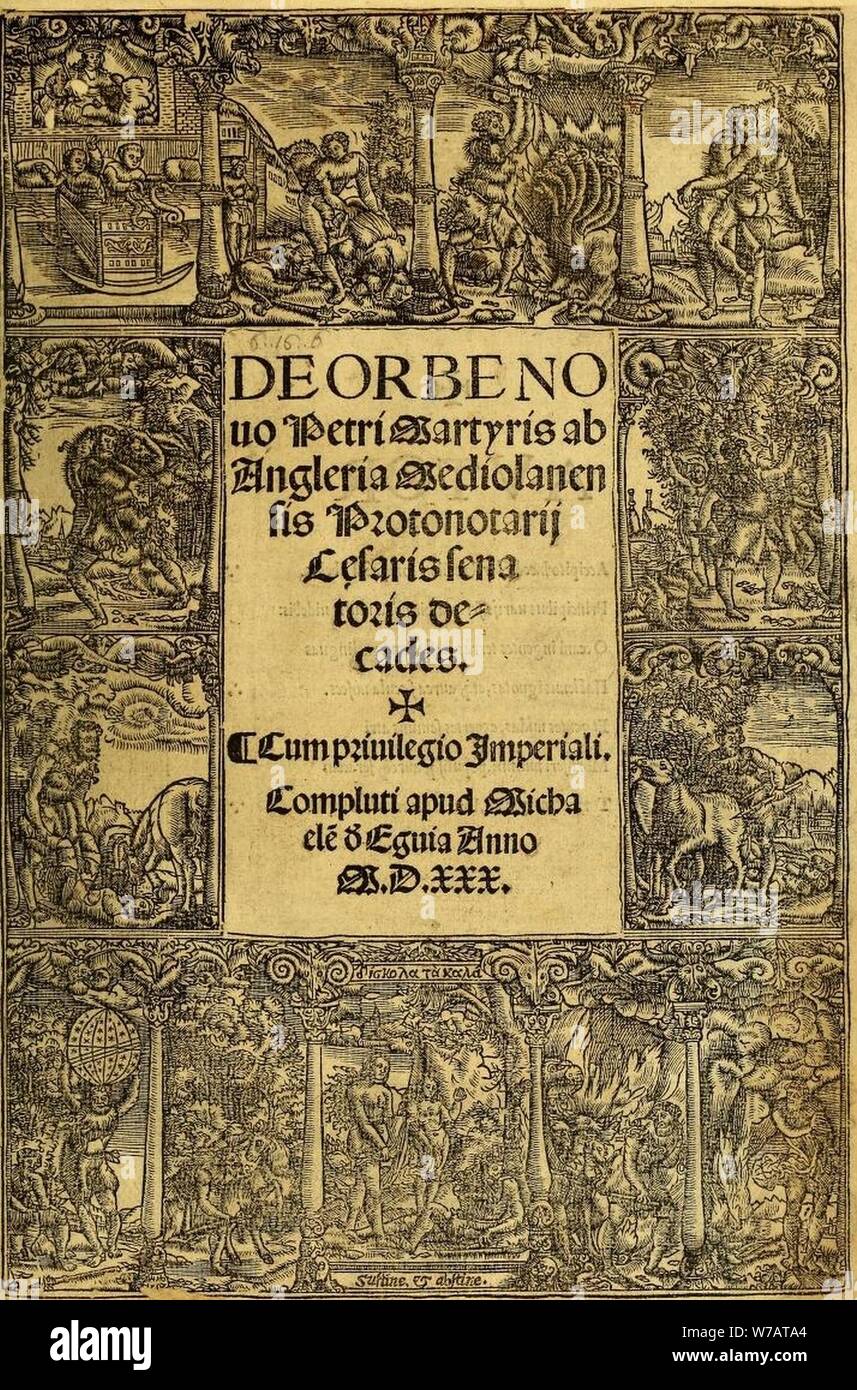 6. .16. 6
DE ORBE NO
uo Petri Martyris ab
Angleria Mediolanen
sis Protonotarij
Cęsaris sena
toris de⸗
cades.
✠
¶ Cum priuilegio Imperiali.
Compluti apud Micha
elē ð Eguia Anno
M.D.XXX.
δίσκολα τὰ καλά
Sustine, & abstine.
alamy
Image ID: W7ATA4
www.alamy.com